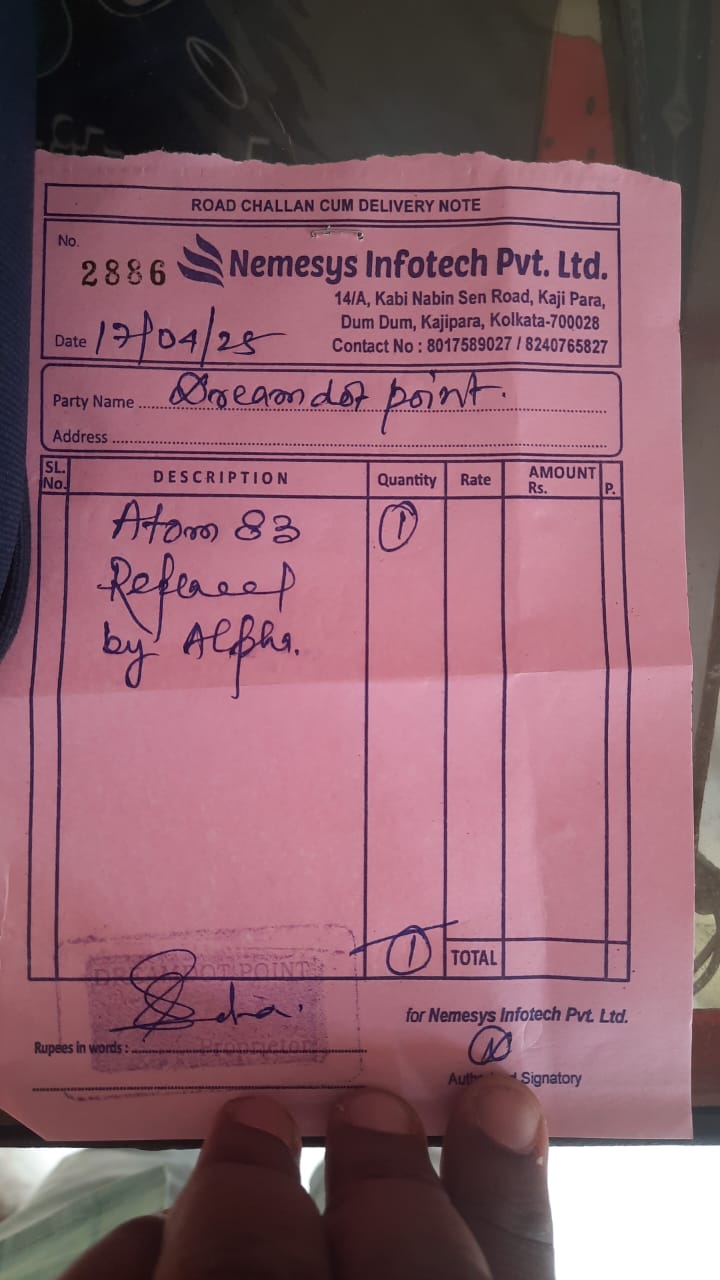 ROAD CHALLAN CUM DELIVERY NOTE
No. 2886
Nemesys Infotech Pvt. Ltd.
14/A, Kabi Nabin Sen Road, Kaji Para,
Dum Dum, Kajipara, Kolkata-700028
Contact No : 8017589027 / 8240765827
Date 17/04/25
Party Name Dreamdot point.
Address
SL. No. DESCRIPTION Quantity Rate AMOUNT Rs. P.
Atom 83 1
by Alpha.
1 TOTAL
DREAM DOT POINT
Proprietor
for Nemesys Infotech Pvt. Ltd.
Rupees in words :
Signatory